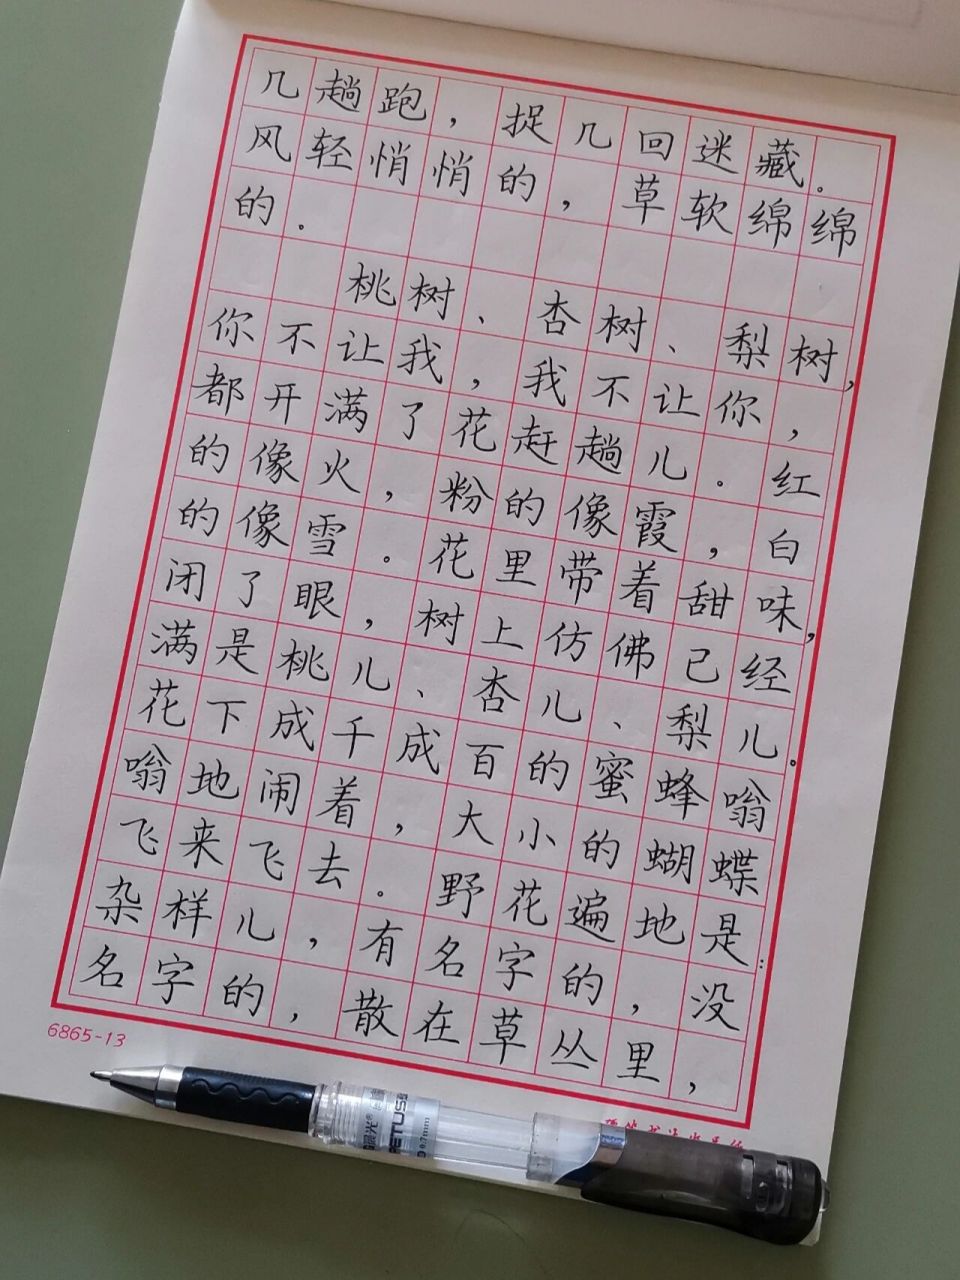 几趟跑，捉几回迷藏。
风轻悄悄的，草软绵绵
的。
桃树、杏树、梨树，
你不让我，我不让你，
都开满了花赶趟儿。红
的像火，粉的像霞，白
的像雪。花里带着甜味，
闭了眼，树上仿佛已经
满是桃儿、杏儿、梨儿。
花下成千成百的蜜蜂嗡
嗡地闹着，大小的蝴蝶
飞来飞去。野花遍地是：
杂样儿，有名字的，没
名字的，散在草丛里，
6865-13
0.7mm